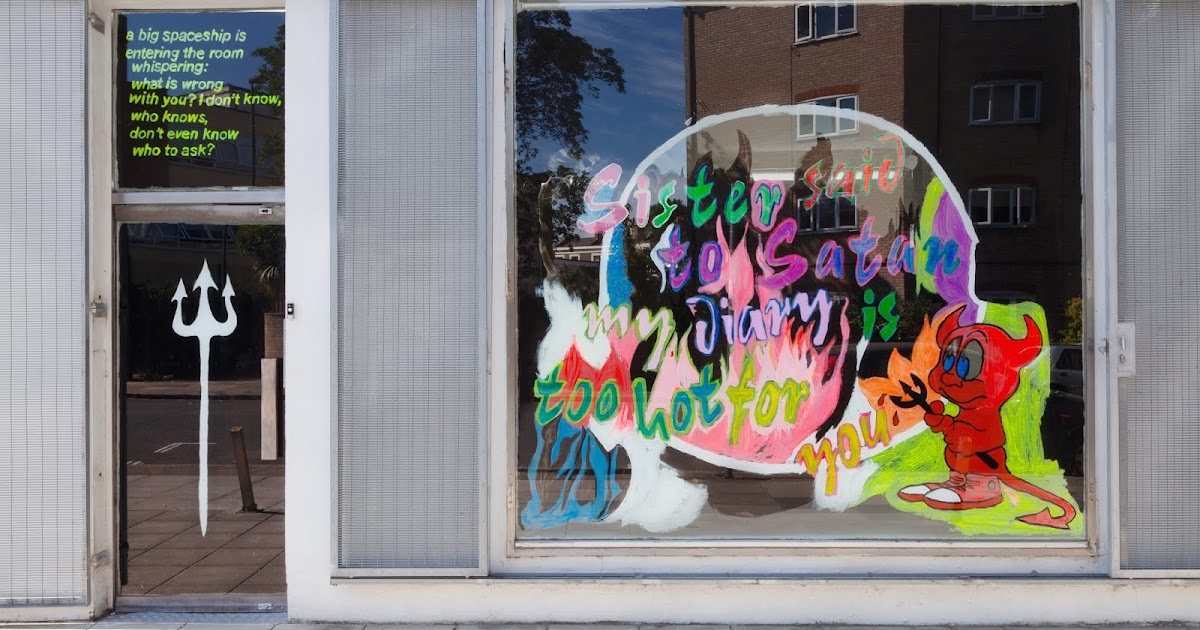 a big spaceship is
entering the room
whispering:
what is wrong
with you? I don't know,
who knows,
don't even know
who to ask?
Sister said
to Satan
my Diary is
too hot for
you